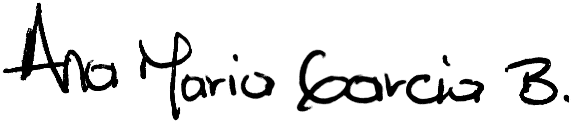 Ana Maria Garcia B.